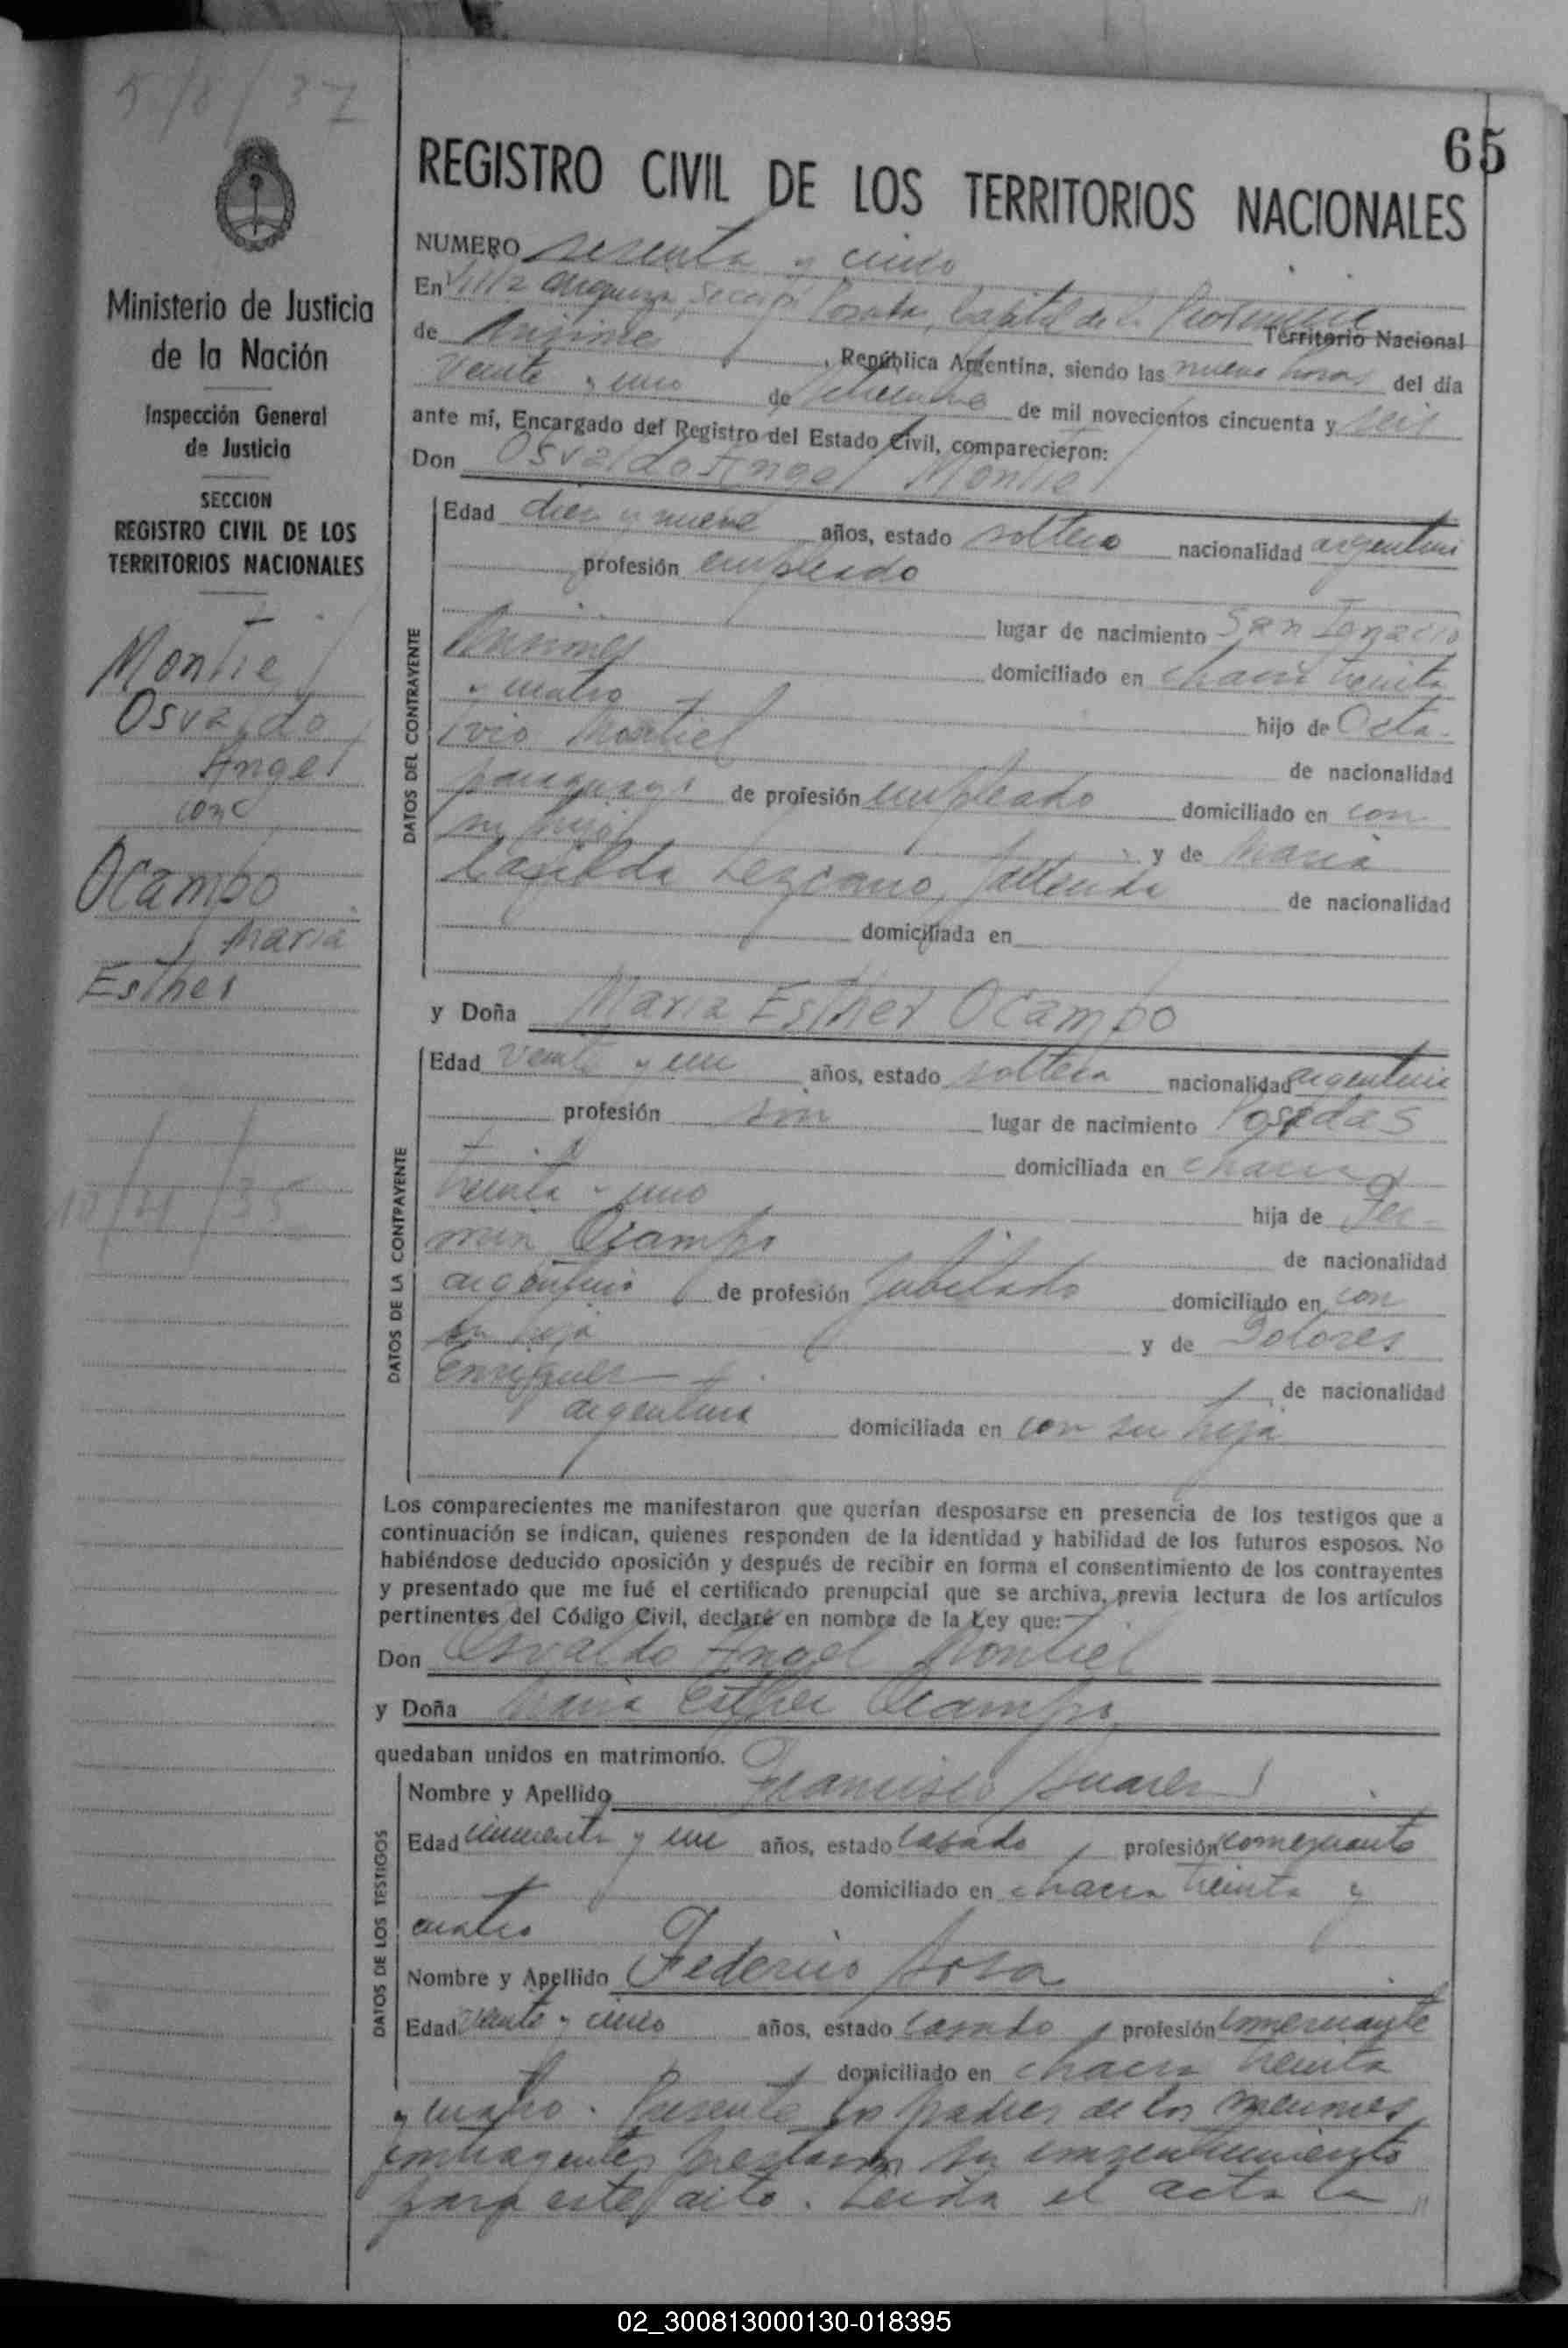 5/8/37
65
REGISTRO CIVIL DE LOS TERRITORIOS NACIONALES
Ministerio de Justicia
de la Nación
Inspección General
de Justicia
SECCION
REGISTRO CIVIL DE LOS
TERRITORIOS NACIONALES
Montiel
Osvaldo
Angel
con
Ocampo
Maria
Esther
12/4/35
NUMERO sesenta y cinco
En Villa Urquiza, Sección Posadas, Capital de la Provincia Territorio Nacional
de Misiones, República Argentina, siendo las nueve horas del día
veinte y uno de de mil novecientos cincuenta y seis
ante mí, Encargado del Registro del Estado Civil, comparecieron:
Don Osvaldo Angel Montiel
DATOS DEL CONTRAYENTE
Edad diez y nueve años, estado soltero nacionalidad argentino
profesión empleado
lugar de nacimiento San Ignacio
Misiones domiciliado en chacra treinta
y cuatro hijo de Octa-
vio Montiel de nacionalidad
paraguayo de profesión empleado domiciliado en con
su hijo y de Maria
Casilda Lezcano, fallecida de nacionalidad
domiciliada en
y Doña Maria Esther Ocampo
DATOS DE LA CONTRAYENTE
Edad veinte y un años, estado soltera nacionalidad argentina
profesión sin lugar de nacimiento Posadas
domiciliada en chacra
treinta y uno hija de Fer-
min Ocampo de nacionalidad
argentino de profesión jubilado domiciliado en con
su hija y de Dolores
Enriquez de nacionalidad
argentina domiciliada en con su hija
Los comparecientes me manifestaron que querían desposarse en presencia de los testigos que a
continuación se indican, quienes responden de la identidad y habilidad de los futuros esposos. No
habiéndose deducido oposición y después de recibir en forma el consentimiento de los contrayentes
y presentado que me fué el certificado prenupcial que se archiva, previa lectura de los artículos
pertinentes del Código Civil, declaré en nombre de la Ley que:
Don Osvaldo Angel Montiel
y Doña Maria Esther Ocampo
quedaban unidos en matrimonio.
DATOS DE LOS TESTIGOS
Nombre y Apellido Francisco Suarez
Edad cincuenta y un años, estado casado profesión comerciante
domiciliado en chacra treinta y
cuatro
Nombre y Apellido Federico Sosa
Edad veinte y cinco años, estado casado profesión comerciante
domiciliado en chacra treinta
y cuatro. Presente los padres de los menores
contrayentes prestaron su consentimiento
para este acto. Leida el acta la
02_300813000130-018395